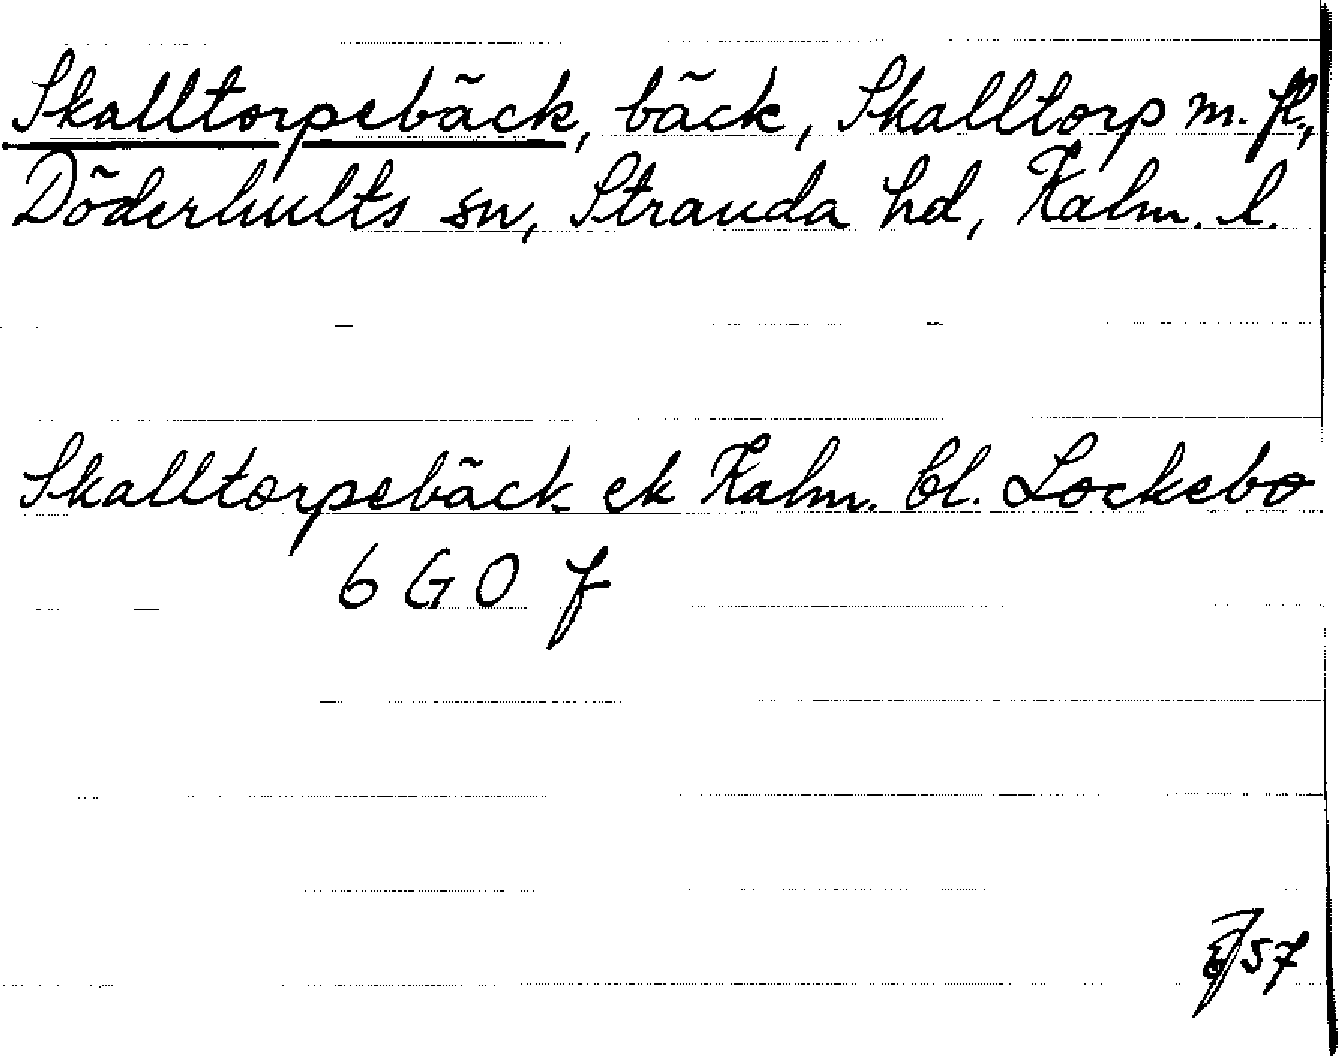 Skalltorpebäck, bäck, Skalltorp m. fl.,
Döderhults sn, Stranda hd, Kalm. l.
Skalltorpebäck ek Kalm. bl. Lockebo
6 G 0 f
57